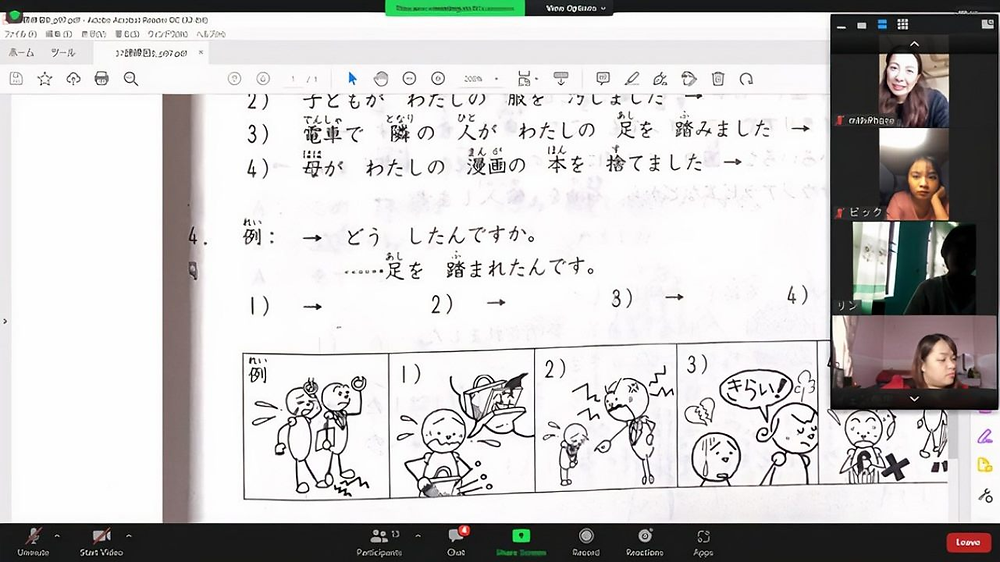 View Options
ホーム ツール
1 / 1
2) 子どもが わたしの 服を 汚しました →
3) 電車で 隣の 人が わたしの 足を 踏みました →
てんしゃ となり ひと あし ふ
4) 母が わたしの 漫画の 本を 捨てました →
はは まん が ほん す
4. 例: → どう したんですか。
れい
……足を 踏まれたんです。
あし ふ
1) → 2) → 3) → 4)
れい
例 1) 2) 3)
きらい!
ビック
リン
Unmute
Start Video
Participants 13
Chat 4
Share Screen
Record
Reactions
Apps
Leave